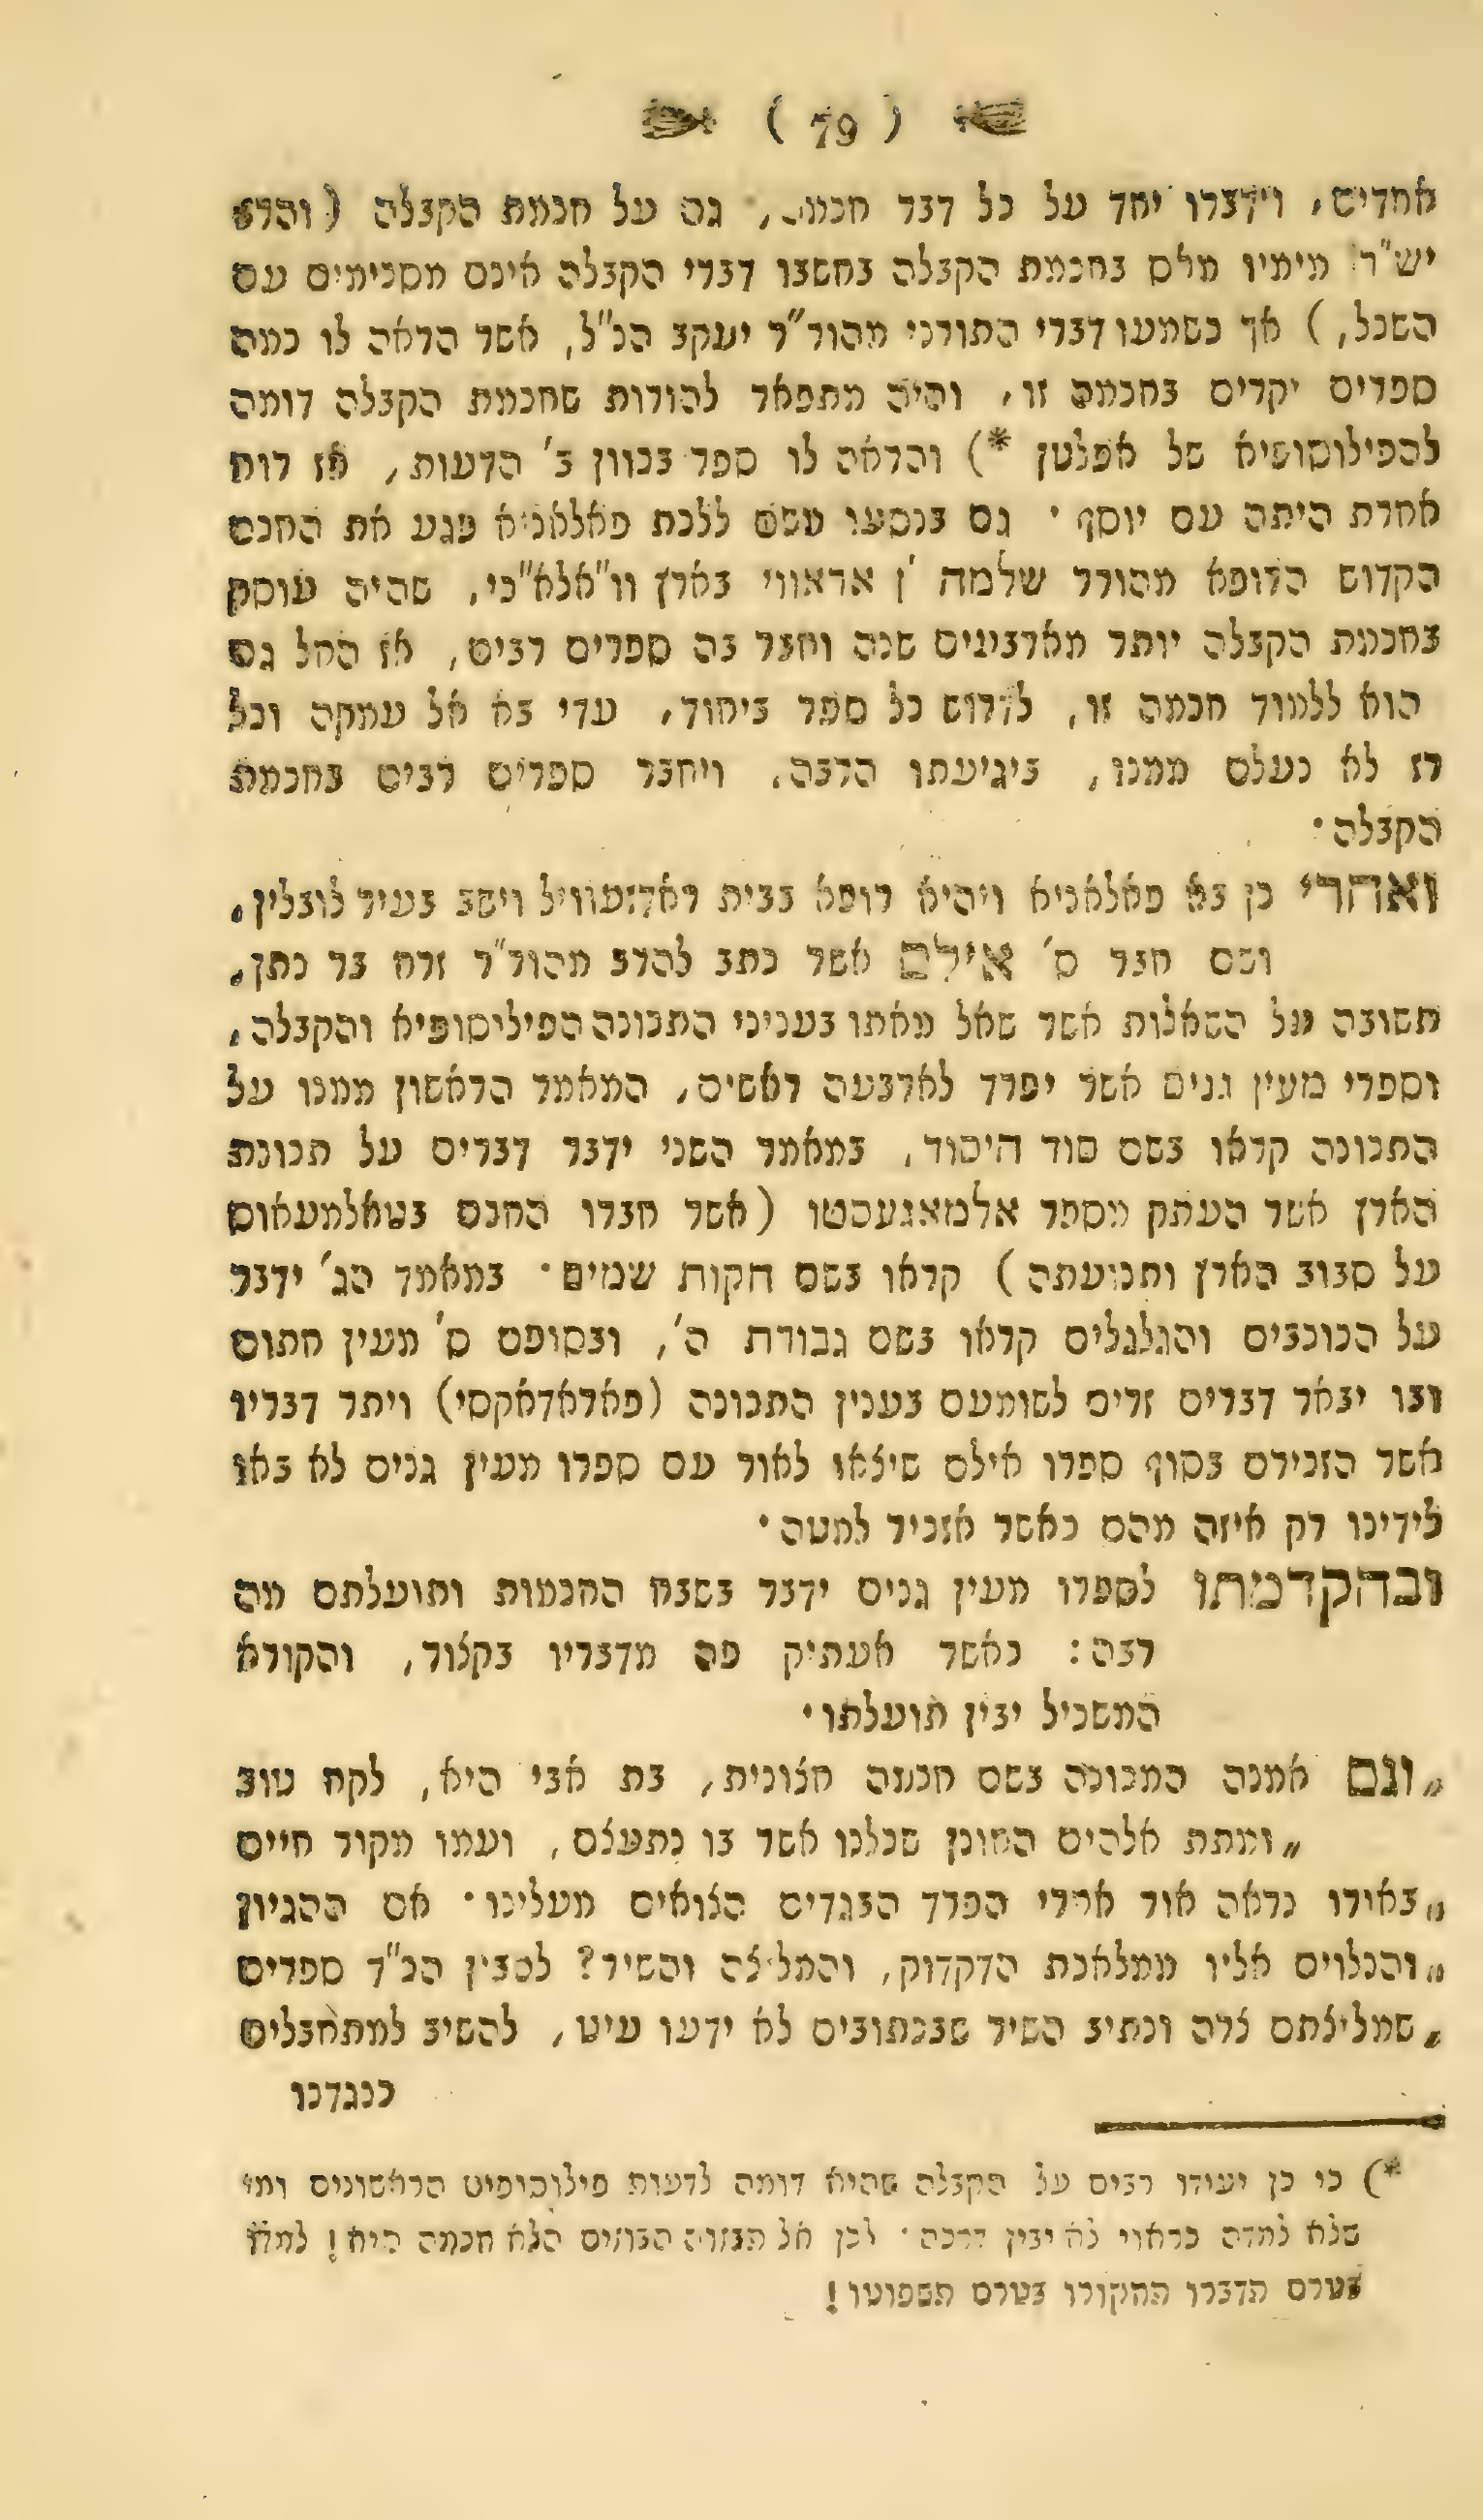 ( 79 )
אחדים, וידברו יחד על כל דבר חכמה, גם על חכמת הקבלה (והרב
יש"ר מימיו מאס בחכמת הקבלה בחשבו דברי הקבלה אינם מסכימים עם
השכל,) אך כשמעו דברי התורני מהור"ר יעקב הנ"ל, אשר הראה לו כמה
ספרים יקרים בחכמה זו, והיה מתפאר להורות שחכמת הקבלה דומה
להפילוסופיא של אפלטן *) והראה לו ספר בכוון ב' הדעות, אז רוח
אחרת היתה עם יוסף · גם בנסעו משם ללכת פאלאניא פגע את החכם
הקדוש הרופא מהורר שלמה ן' אראווי בארץ וו"אלא"כי, שהיה עוסק
בחכמת הקבלה יותר מארבעים שנה וחבר בה ספרים רבים, אז החל גם
הוא ללמוד חכמה זו, לדרוש כל ספר ביחוד, עדי בא אל עמקה וכל
רז לא נעלם ממנו, ביגיעתו הרבה, ויחבר ספרים רבים בחכמת
הקבלה·
ואחרי כן בא פאלאניא ויהיא רופא בבית ראדזעוויל וישב בעיר לובלין,
ושם חבר ס' אילם אשר כתב להרב מהור"ר זרח בר נתן,
תשובה על השאלות אשר שאל מאתו בעניני התכונה הפיליסופיא והקבלה,
וספרי מעין גנים אשר יפרד לארבעה ראשים, המאמר הראשון ממנו על
התכונה קראו בשם סוד היסוד, במאמר השני ידבר דברים על תכונת
הארץ אשר העתק מספר אלמאגעסטו (אשר חברו החכם בטאלמעאוס
על סבוב הארץ ותנועתה) קראו בשם חקות שמים· במאמר הג' ידבר
על הכוכבים והגלגלים קראו בשם גבורת ה', ובסופם ס' מעין חתום
ובו יבאר דברים זרים לשומעם בענין התכונה (פאראדאקסי) ויתר דבריו
אשר הזכירם בסוף ספרו אילם שיצאו לאור עם ספרו מעין גנים לא באו
לידינו רק איזה מהם כאשר אזכיר למטה·
ובהקדמתו לספרו מעין גנים ידבר בשבח החכמות ותועלתם מה
רבה: כאשר אעתיק פה מדבריו בקצור, והקורא
המשכיל יבין תועלתו·
„וגם אמנה המכונה בשם חכמה חצונית, בת אבי היא, לקח טוב
„ומתת אלהים החונן שכלנו אשר בו נתעצם, ועמו מקור חיים
„באורו נראה אור אחרי הפרד הבגדים הצואים מעלינו· אם ההגיון
„והנלוים אליו ממלאכת הדקדוק, והמליצה והשיר? להבין הכ"ד ספרים
„שמליצתם צרה ונתיב השיר שבכתובים לא ידעו עיט, להשיב למתחבלים
כנגדנו
*) כי כן יעידו רבים על הקבלה שהיא דומה לדעות פילוסופיט הראשונים ומי
שלא למדה כראוי לא יבין דרכה · לכן אל תבזוה הבוזים הלא חכמה היא! למדו
בטרם תדברו תחקורו בטרם תשפוטו!